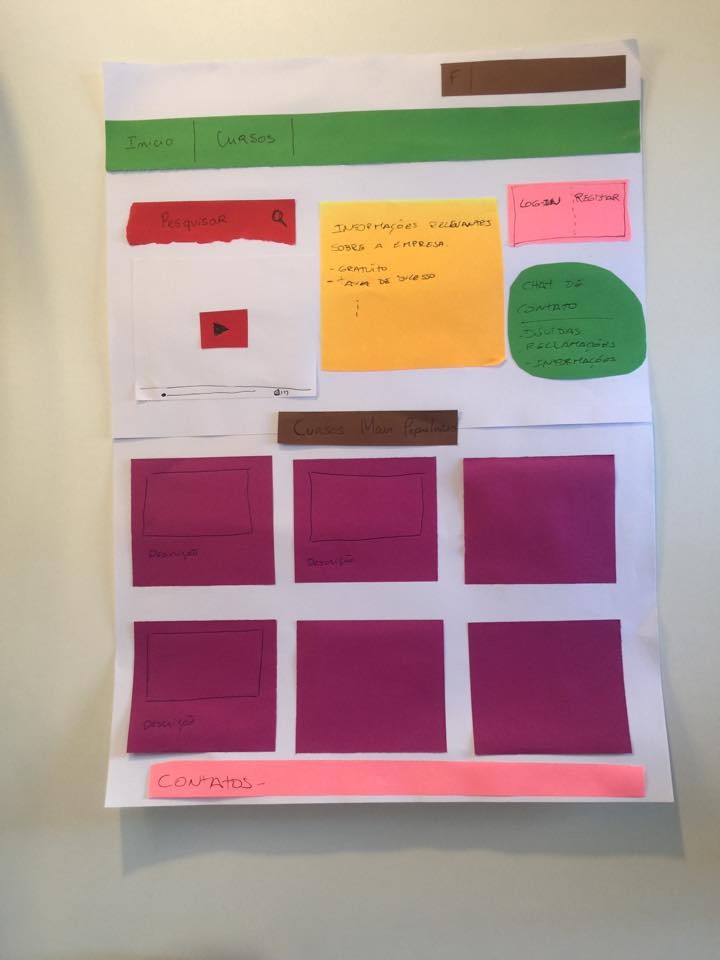 F
Início
CURSOS
Pesquisar
INFORMAÇÕES RELEVANTES
SOBRE A EMPRESA.
- GRATUITO
- TAXA DE SUCESSO
LOG-IN
REGISTAR
CHAT DE
CONTATO
- DÚVIDAS
RECLAMAÇÕES
- INFORMAÇÕES
Cursos Mais Populares
Descrição
Descrição
Descrição
CONTATOS -